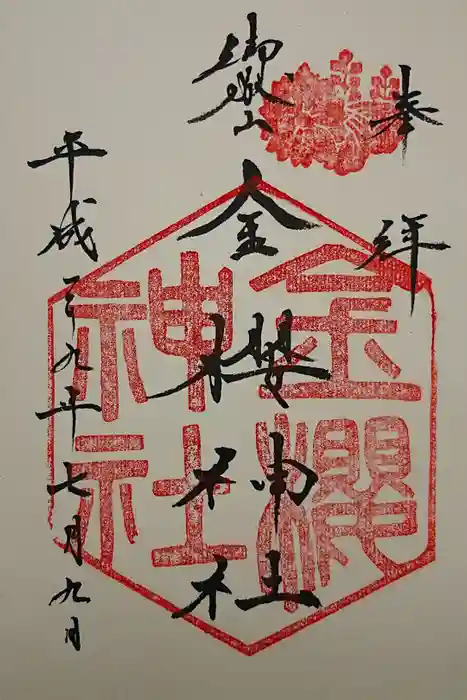 奉拝
御嶽山
金櫻神社
金櫻
神社
平成二十九年七月九日